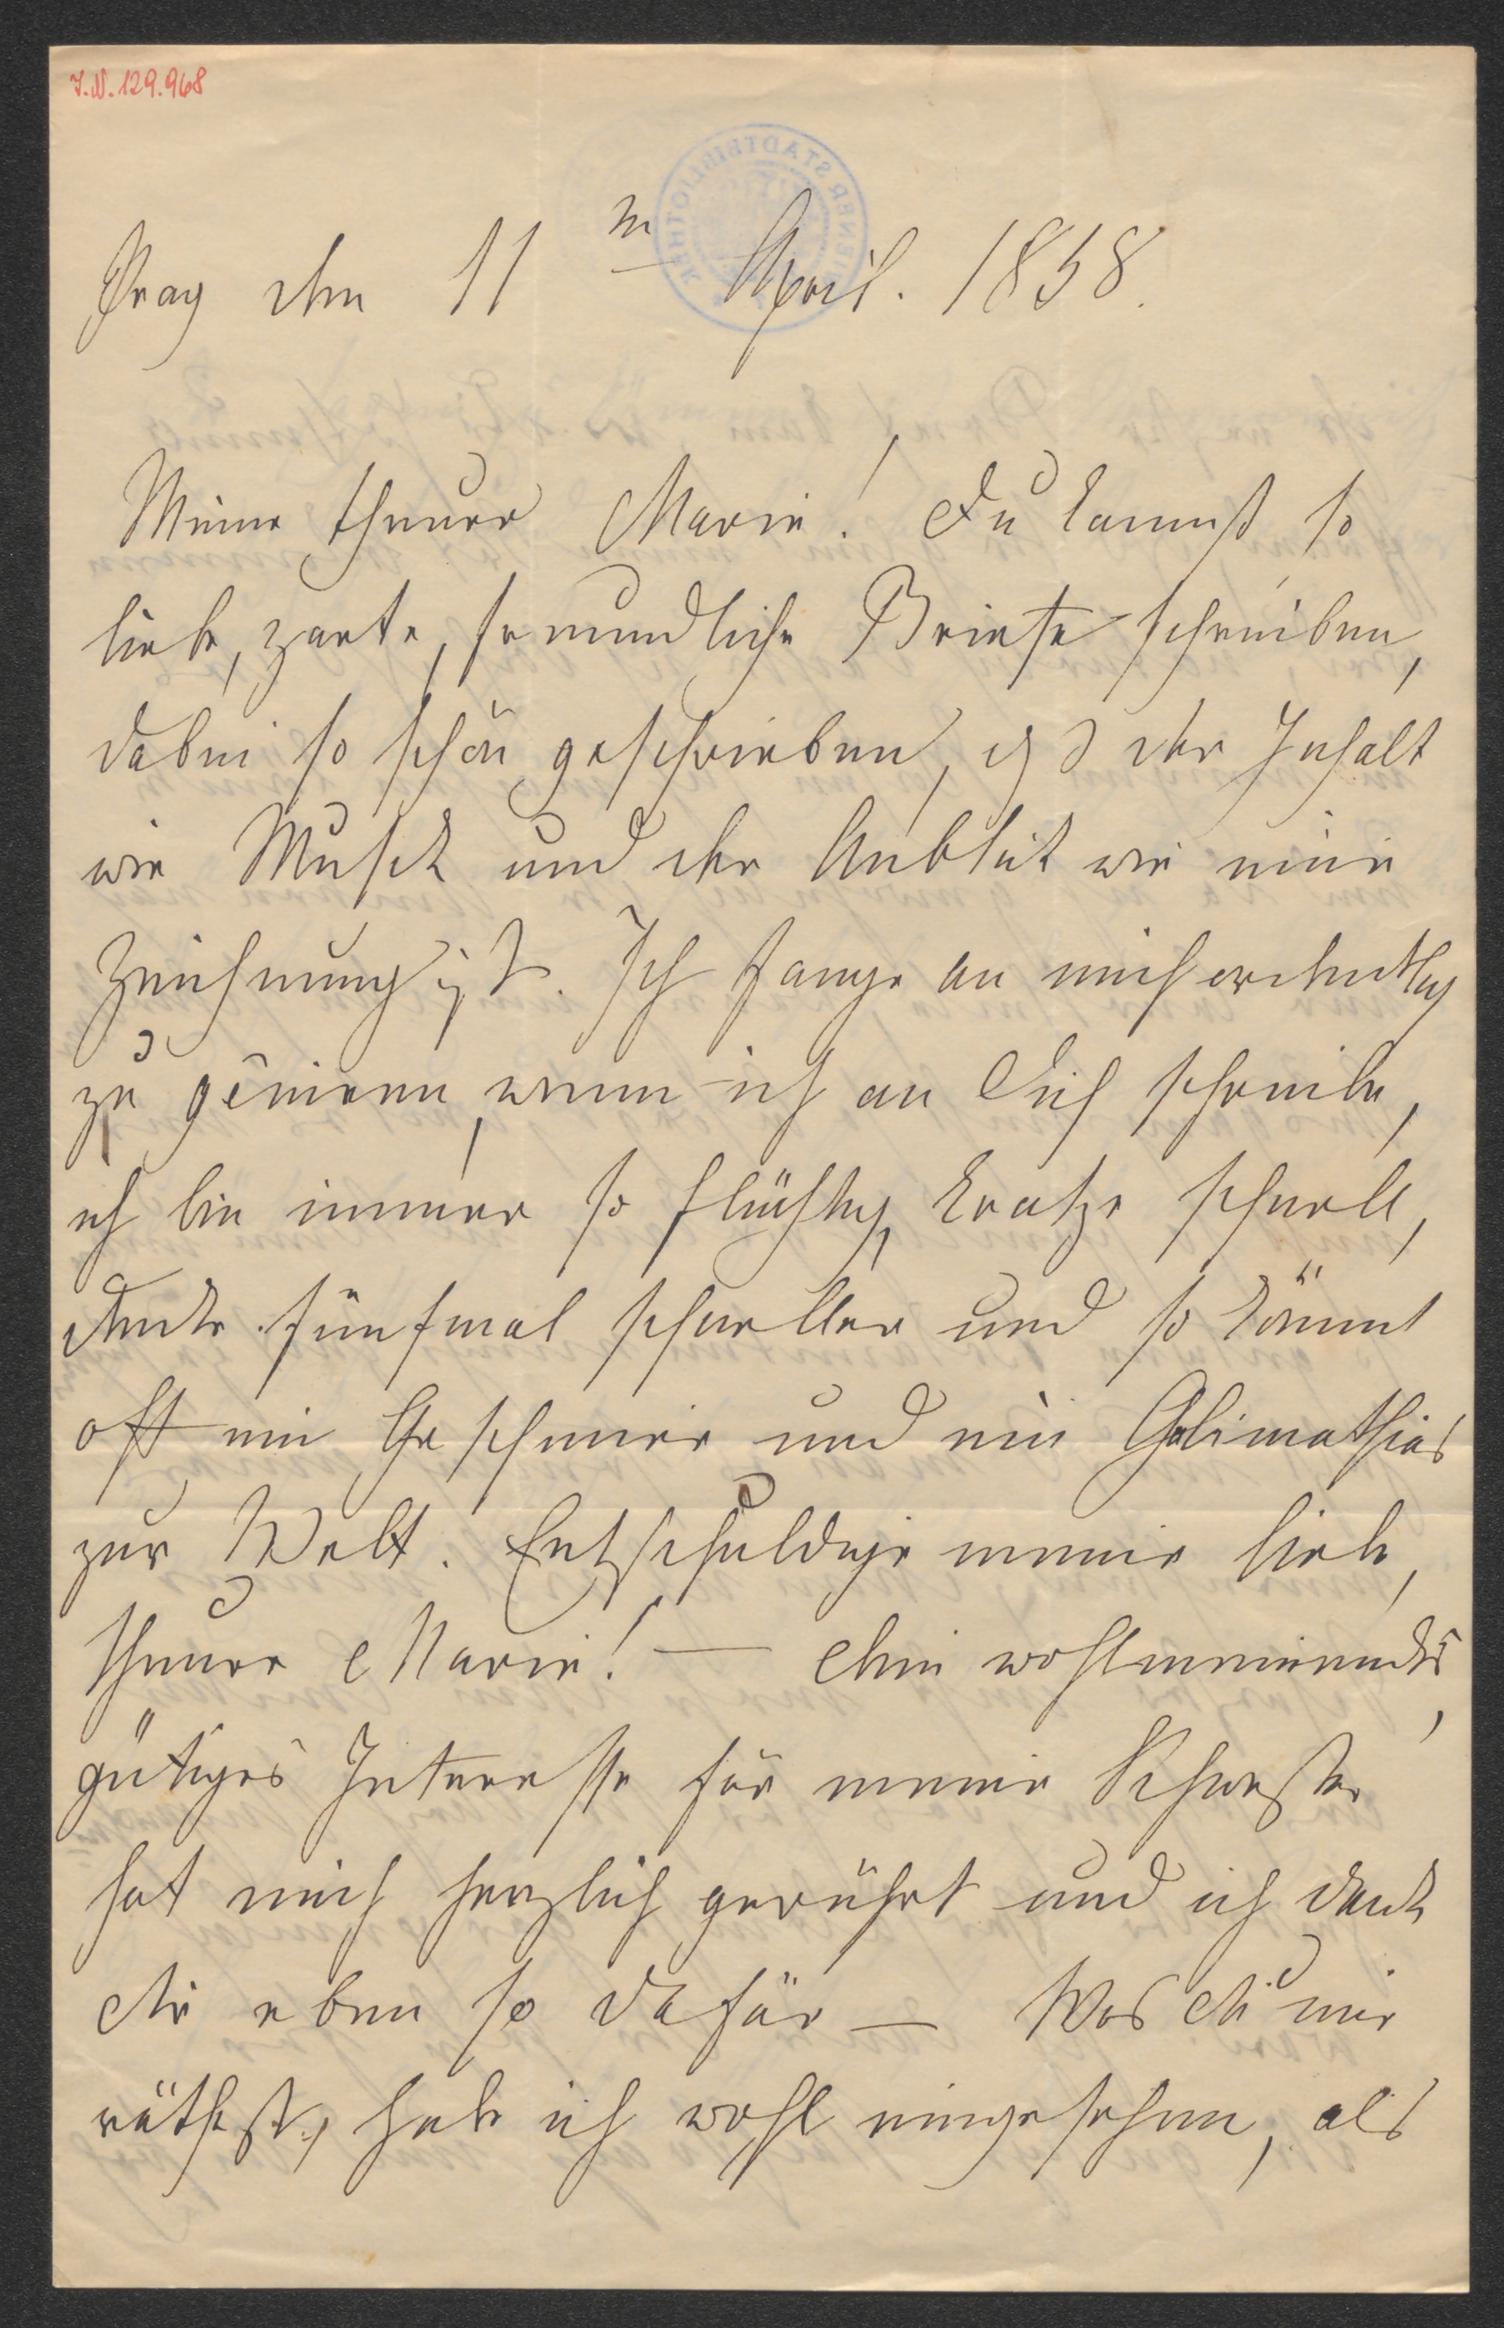 I.N. 129.968
WIENER STADTBIBLIOTHEK
Prag den 11n April. 1858.
Meine theure Marie! Du kannst so
liebe, zarte, freundliche Briefe schreiben,
dabei so schön geschrieben, daß der Inhalt
wie Musik und der Anblick wie eine
Zeichnung ist. Ich fange an mich ordentlich
zu geniren, wenn ich an Dich schreibe,
ich bin immer so flüchtig, kratze schnell,
denke fünfmal schneller und so kömmt
oft ein Geschmier und ein Galimathias
zur Welt. Entschuldige meine liebe,
theure Marie! — Dein wohlmeinendes,
gütiges Interesse für meine Schwester
hat mich herzlich gerührt und ich danke
dir eben so dafür — Was du mir
räthst, habe ich wohl eingesehen, als